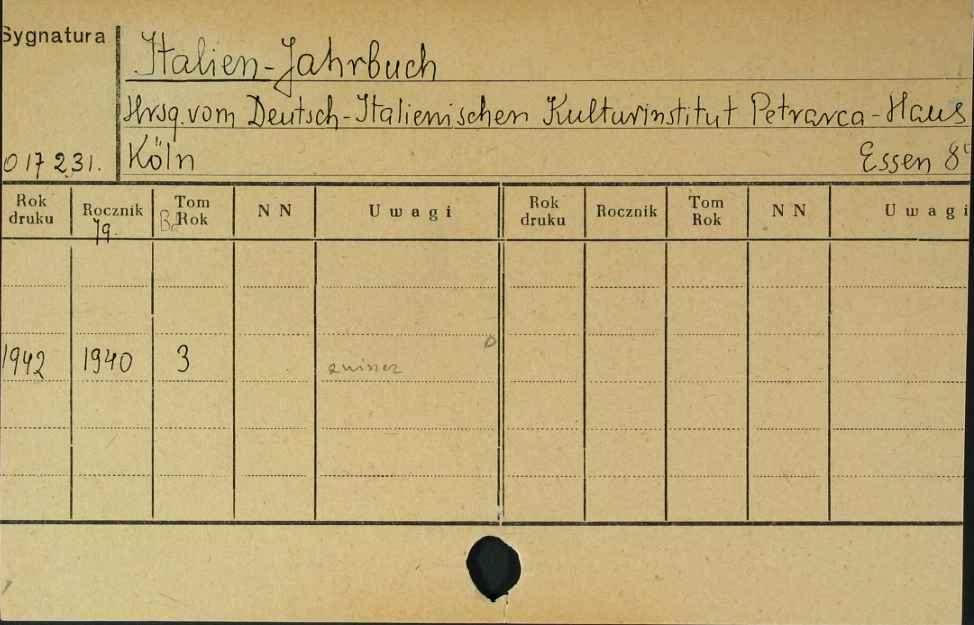 Sygnatura
Italien-Jahrbuch
Hrsg. vom Deutsch-Italienischen Kulturinstitut Petrarca-Haus
017231. Köln Essen 8°
Rok druku Rocznik Tom Rok NN Uwagi Rok druku Rocznik Tom Rok NN Uwagi
Jg. Bd
1942 1940 3